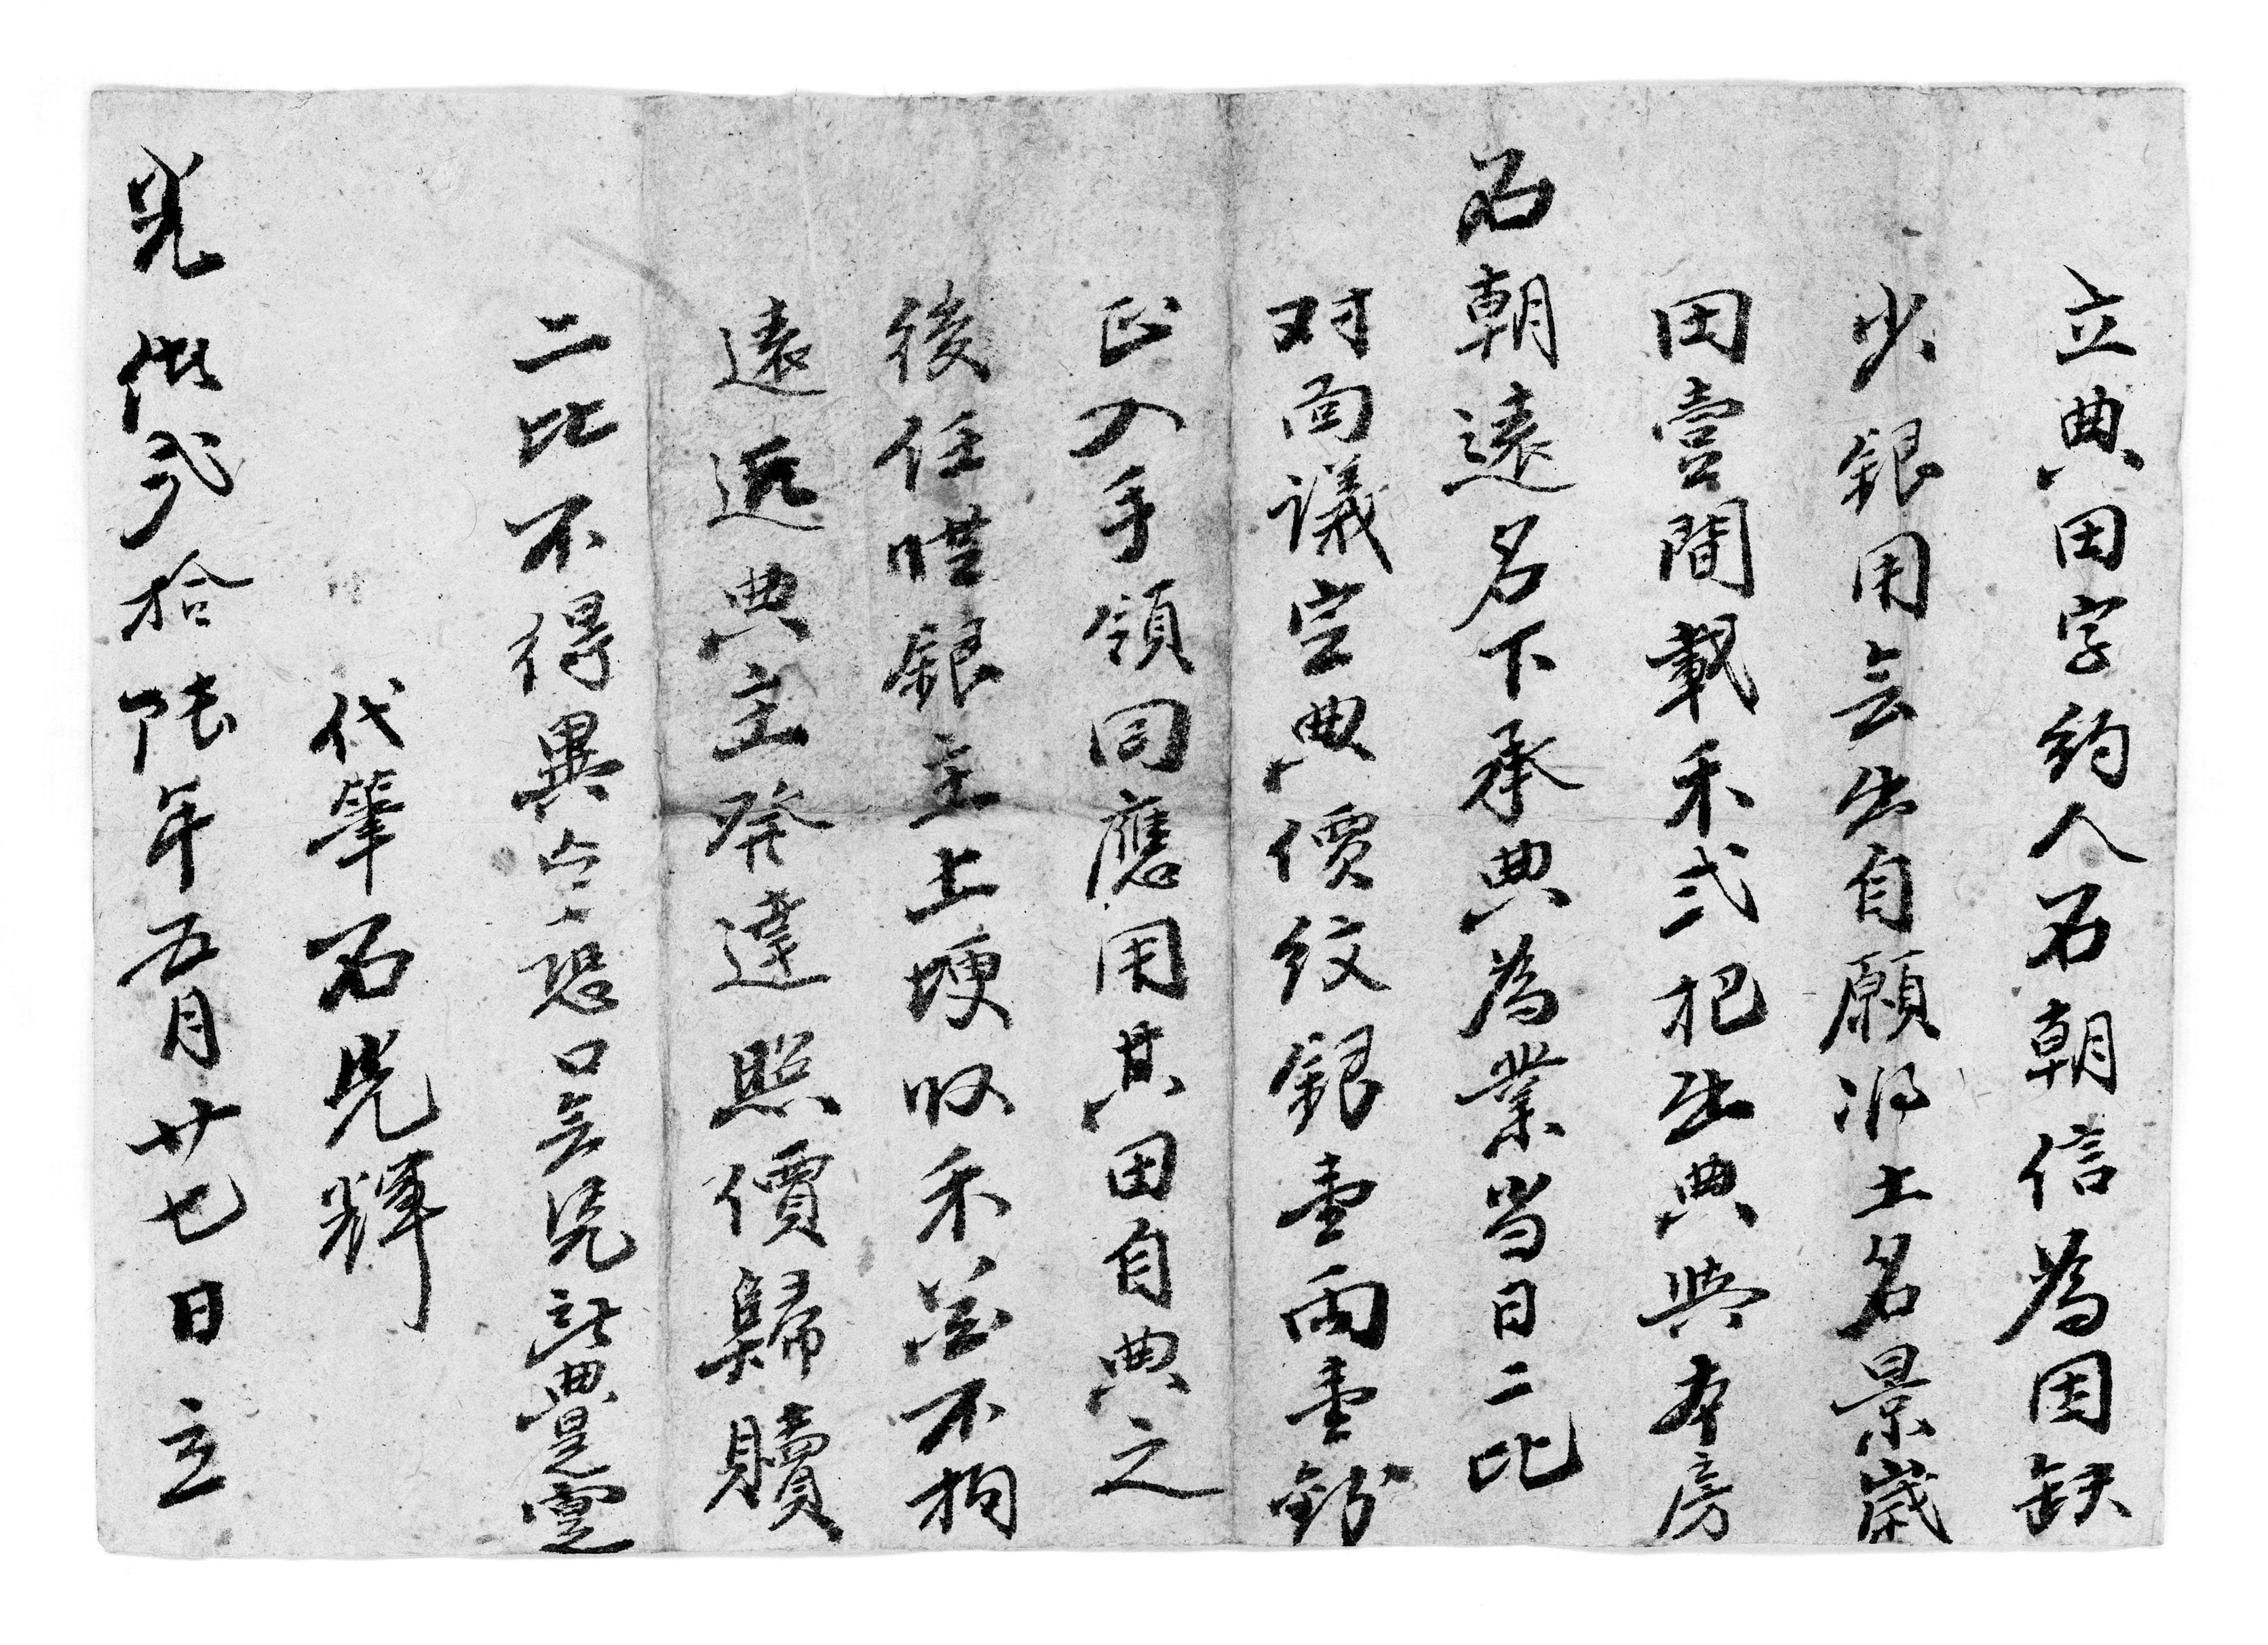 立典田字約人石朝信為因缺
少銀用無出自願將土名景崴
田壹間載禾弍把出典與本房
石朝遠名下承典為業当日二比
对面議定典價紋銀壹兩壹錢
正入手領回應用其田自典之
後任憑銀主上埂收禾並不拘
遠近典主發達照價歸贖
二比不得異言恐口無凭立典是實
代筆石光輝
光緒弍拾陸年五月廿七日立